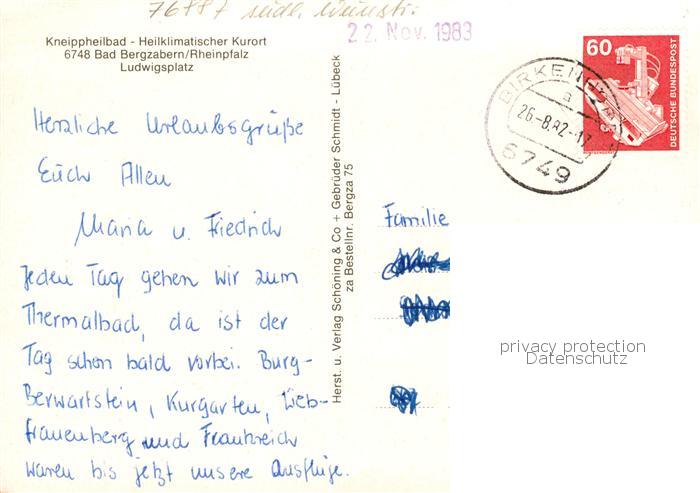 76887 südl. Weinstr.
22. Nov. 1983
Kneippheilbad - Heilklimatischer Kurort
6748 Bad Bergzabern/Rheinpfalz
Ludwigsplatz
60
DEUTSCHE BUNDESPOST
26-8.82-17
6749
Herzliche Urlaubsgrüße
Euch Allen
Maria u. Friedrich
Jeden Tag gehen wir zum
Thermalbad, da ist der
Tag schon bald vorbei. Burg-
Berwartstein, Kurgarten, Lieb-
frauenberg und Frankreich
waren bis jetzt unsere Ausflüge.
Herst. u. Verlag Schöning & Co + Gebrüder Schmidt - Lübeck
za Bestellnr. Bergza 75
Familie
privacy protection
Datenschutz